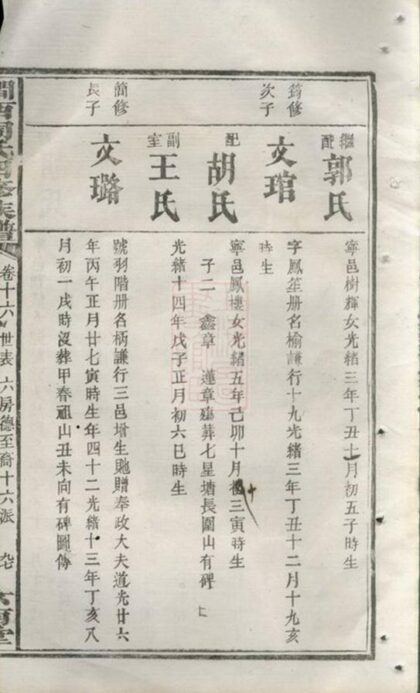 繼配 郭氏
寧邑樹輝女光緒三年丁丑十月初五子時生
筠修次子
文琯
字鳳笙册名榆謙行十九光緒三年丁丑十二月十九亥
時生
配 胡氏
寧邑鳳樓女光緒五年己卯十月初三寅時生
子二 鑫章 蓮章 葬七星塘長圍山有碑
副室 王氏
光緒十四年戊子正月初六巳時生
簡修長子
文璐
號羽階册名柄謙行三邑增生貤贈奉政大夫道光廿六
年丙午正月廿七寅時生年四十二光緒十三年丁亥八
月初一戌時没葬甲春祖山丑未向有碑圖傳
卷十六 世表 六房德至裔十六派